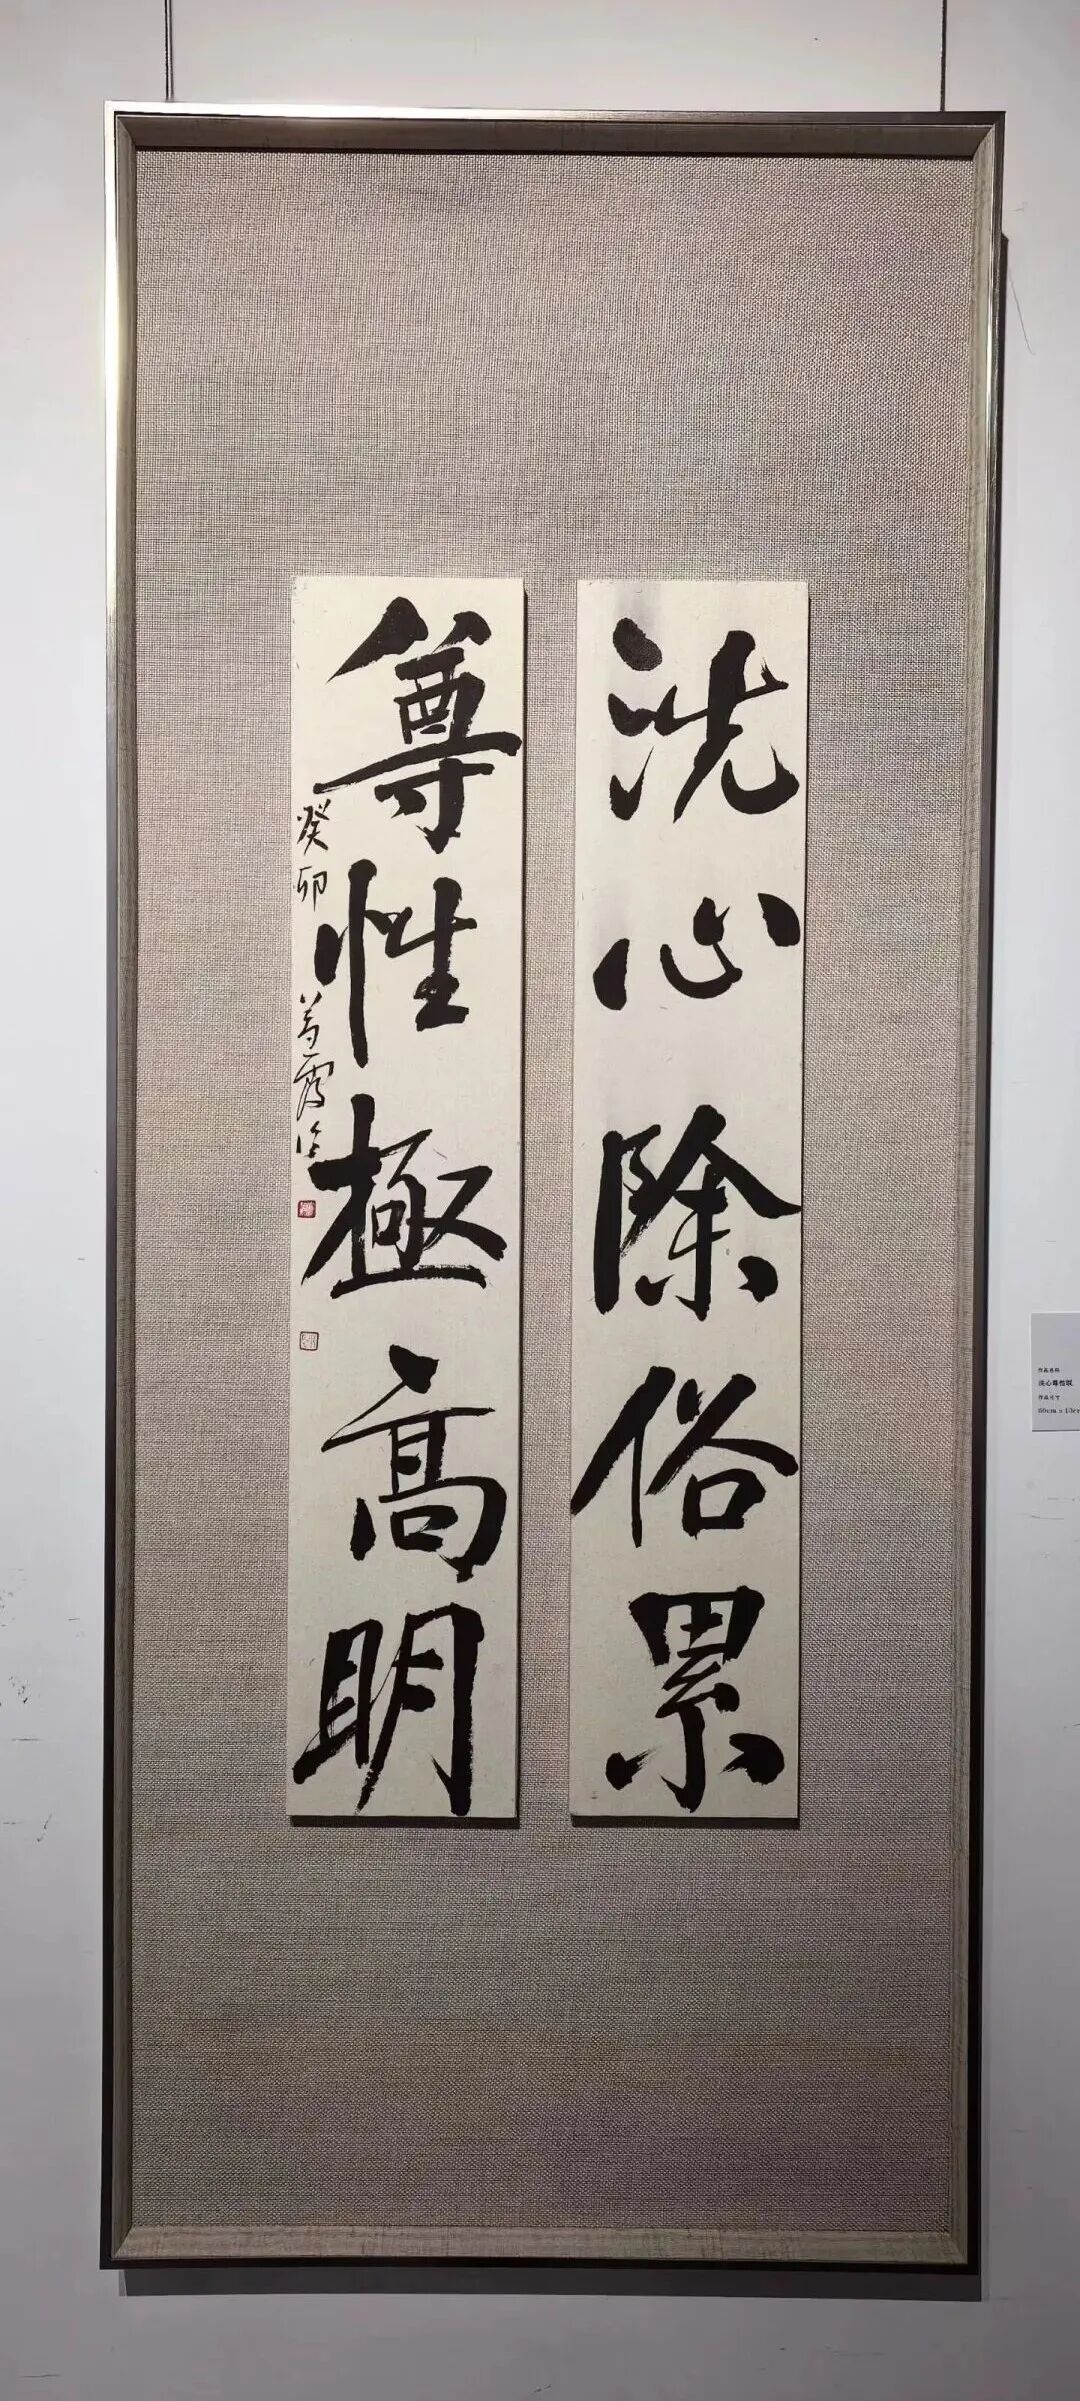 洗心除俗累
尊性極高明
癸卯
作品名称
洗心尊性联
作品尺寸